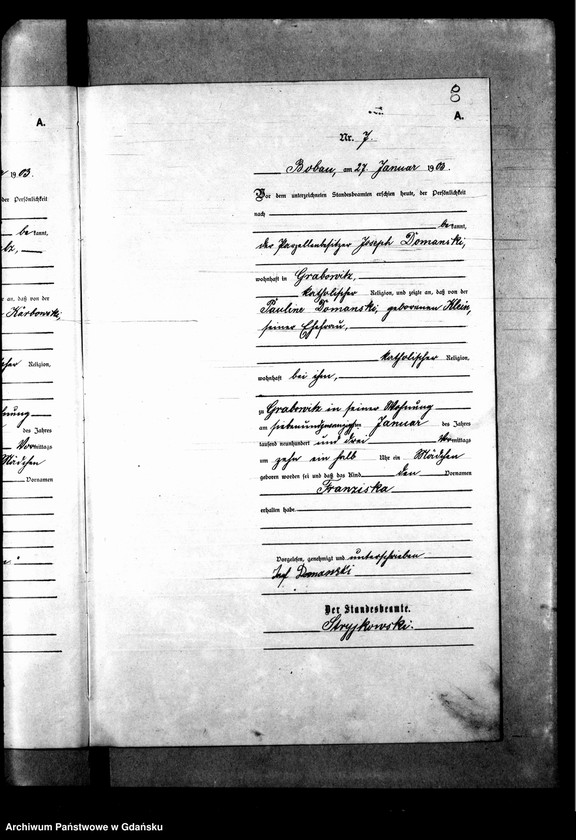 A.
1903.
der Persönlichkeit
be kannt,
an, daß von der
Karbowski,
Religion,
des Jahres
Vormittags
Mädchen
Vornamen
8
A.
Nr. 7.
Bobau, am 27. Januar 1903.
Vor dem unterzeichneten Standesbeamten erschien heute, der Persönlichkeit
nach
be kannt,
der Parzellenbesitzer Joseph Domanski,
wohnhaft in Grabowitz,
katholischer Religion, und zeigte an, daß von der
Pauline Domanski, geborenen Klein,
seiner Ehefrau,
katholischer Religion,
wohnhaft bei ihm,
zu Grabowitz in seiner Wohnung
am siebenundzwanzigsten Januar des Jahres
tausend neunhundert und drei Vormittags
um zehn ein halb Uhr ein Mädchen
geboren worden sei und daß das Kind den Vornamen
Franziska
erhalten habe.
Vorgelesen, genehmigt und unterschrieben
Josef Domanski
Der Standesbeamte.
Stryjkowski.
Archiwum Państwowe w Gdańsku